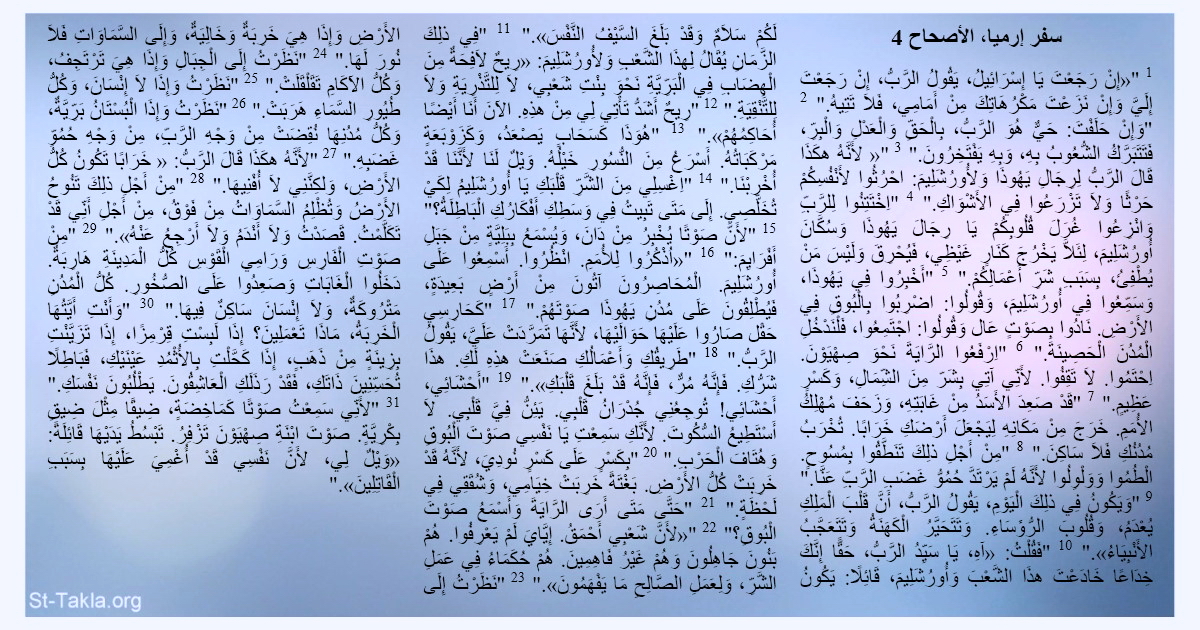 سفر إرميا، الأصحاح 4
1 "«إِنْ رَجَعْتَ يَا إِسْرَائِيلُ، يَقُولُ الرَّبُّ، إِنْ رَجَعْتَ
إِلَيَّ وَإِنْ نَزَعْتَ مَكْرُهَاتِكَ مِنْ أَمَامِي، فَلاَ تَتِيهُ." 2
"وَإِنْ حَلَفْتَ: حَيٌّ هُوَ الرَّبُّ، بِالْحَقِّ وَالْعَدْلِ وَالْبِرِّ،
فَتَتَبَرَّكُ الشُّعُوبُ بِهِ، وَبِهِ يَفْتَخِرُونَ." 3 "« لأَنَّهُ هكَذَا
قَالَ الرَّبُّ لِرِجَالِ يَهُوذَا وَلأُورُشَلِيمَ: احْرُثُوا لأَنْفُسِكُمْ
حَرْثًا وَلاَ تَزْرَعُوا فِي الأَشْوَاكِ." 4 "اِخْتَتِنُوا لِلرَّبِّ
وَانْزِعُوا غُرَلَ قُلُوبِكُمْ يَا رِجَالَ يَهُوذَا وَسُكَّانَ
أُورُشَلِيمَ، لِئَلاَّ يَخْرُجَ كَنَارٍ غَيْظِي، فَيُحْرِقَ وَلَيْسَ مَنْ
يُطْفِئُ، بِسَبَبِ شَرِّ أَعْمَالِكُمْ." 5 "أَخْبِرُوا فِي يَهُوذَا،
وَسَمِّعُوا فِي أُورُشَلِيمَ، وَقُولُوا: اضْرِبُوا بِالْبُوقِ فِي
الأَرْضِ. نَادُوا بِصَوْتٍ عَال وَقُولُوا: اجْتَمِعُوا، فَلْنَدْخُلِ
الْمُدُنَ الْحَصِينَةَ." 6 "اِرْفَعُوا الرَّايَةَ نَحْوَ صِهْيَوْنَ.
اِحْتَمُوا. لاَ تَقِفُوا. لأَنِّي آتِي بِشَرّ مِنَ الشِّمَالِ، وَكَسْرٍ
عَظِيمٍ." 7 "قَدْ صَعِدَ الأَسَدُ مِنْ غَابَتِهِ، وَزَحَفَ مُهْلِكُ
الأُمَمِ. خَرَجَ مِنْ مَكَانِهِ لِيَجْعَلَ أَرْضَكِ خَرَابًا. تُخْرَبُ
مُدُنُكِ فَلاَ سَاكِنَ." 8 "مِنْ أَجْلِ ذلِكَ تَنَطَّقُوا بِمُسُوحٍ.
الْطُمُوا وَوَلْوِلُوا لأَنَّهُ لَمْ يَرْتَدَّ حُمُوُّ غَضَبِ الرَّبِّ عَنَّا."
9 "وَيَكُونُ فِي ذلِكَ الْيَوْمِ، يَقُولُ الرَّبُّ، أَنَّ قَلْبَ الْمَلِكِ
يُعْدَمُ، وَقُلُوبَ الرُّؤَسَاءِ. وَتَتَحَيَّرُ الْكَهَنَةُ وَتَتَعَجَّبُ
الأَنْبِيَاءُ»." 10 "فَقُلْتُ: «آهِ، يَا سَيِّدُ الرَّبُّ، حَقًّا إِنَّكَ
خِدَاعًا خَادَعْتَ هذَا الشَّعْبَ وَأُورُشَلِيمَ، قَائِلاً: يَكُونُ
لَكُمْ سَلاَمٌ وَقَدْ بَلَغَ السَّيْفُ النَّفْسَ»." 11 "فِي ذلِكَ
الزَّمَانِ يُقَالُ لِهذَا الشَّعْبِ وَلأُورُشَلِيمَ: «رِيحٌ لاَفِحَةٌ مِنَ
الْهِضَابِ فِي الْبَرِّيَّةِ نَحْوَ بِنْتِ شَعْبِي، لاَ لِلتَّذْرِيَةِ وَلاَ
لِلتَّنْقِيَةِ." 12 "رِيحٌ أَشَدُّ تَأْتِي لِي مِنْ هذِهِ. الآنَ أَنَا أَيْضًا
أُحَاكِمُهُمْ»." 13 "هُوَذَا كَسَحَابٍ يَصْعَدُ، وَكَزَوْبَعَةٍ
مَرْكَبَاتُهُ. أَسْرَعُ مِنَ النُّسُورِ خَيْلُهُ. وَيْلٌ لَنَا لأَنَّنَا قَدْ
أُخْرِبْنَا." 14 "اِغْسِلِي مِنَ الشَّرِّ قَلْبَكِ يَا أُورُشَلِيمُ لِكَيْ
تُخَلَّصِي. إِلَى مَتَى تَبِيتُ فِي وَسَطِكِ أَفْكَارُكِ الْبَاطِلَةُ؟"
15 "لأَنَّ صَوْتًا يُخْبِرُ مِنْ دَانَ، وَيُسْمَعُ بِبَلِيَّةٍ مِنْ جَبَلِ
أَفْرَايِمَ:" 16 "«اُذْكُرُوا لِلأُمَمِ. انْظُرُوا. أَسْمِعُوا عَلَى
أُورُشَلِيمَ. الْمُحَاصِرُونَ آتُونَ مِنْ أَرْضٍ بَعِيدَةٍ،
فَيُطْلِقُونَ عَلَى مُدُنِ يَهُوذَا صَوْتَهُمْ." 17 "كَحَارِسِي
حَقْل صَارُوا عَلَيْهَا حَوَالَيْهَا، لأَنَّهَا تَمَرَّدَتْ عَلَيَّ، يَقُولُ
الرَّبُّ." 18 "طَرِيقُكِ وَأَعْمَالُكِ صَنَعَتْ هذِهِ لَكِ. هذَا
شَرُّكِ. فَإِنَّهُ مُرٌّ، فَإِنَّهُ قَدْ بَلَغَ قَلْبَكِ»." 19 "أَحْشَائِي،
أَحْشَائِي! تُوجِعُنِي جُدْرَانُ قَلْبِي. يَئِنُّ فِيَّ قَلْبِي. لاَ
أَسْتَطِيعُ السُّكُوتَ. لأَنَّكِ سَمِعْتِ يَا نَفْسِي صَوْتَ الْبُوقِ
وَهُتَافَ الْحَرْبِ." 20 "بِكَسْرٍ عَلَى كَسْرٍ نُودِيَ، لأَنَّهُ قَدْ
خَرِبَتْ كُلُّ الأَرْضِ. بَغْتَةً خَرِبَتْ خِيَامِي، وَشُقَقِي فِي
لَحْظَةٍ." 21 "حَتَّى مَتَى أَرَى الرَّايَةَ وَأَسْمَعُ صَوْتَ
الْبُوقِ؟" 22 "«لأَنَّ شَعْبِي أَحْمَقُ. إِيَّايَ لَمْ يَعْرِفُوا. هُمْ
بَنُونَ جَاهِلُونَ وَهُمْ غَيْرُ فَاهِمِينَ. هُمْ حُكَمَاءُ فِي عَمَلِ
الشَّرِّ، وَلِعَمَلِ الصَّالِحِ مَا يَفْهَمُونَ»." 23 "نَظَرْتُ إِلَى
الأَرْضِ وَإِذَا هِيَ خَرِبَةٌ وَخَالِيَةٌ، وَإِلَى السَّمَاوَاتِ فَلاَ
نُورَ لَهَا." 24 "نَظَرْتُ إِلَى الْجِبَالِ وَإِذَا هِيَ تَرْتَجِفُ،
وَكُلُّ الآكَامِ تَقَلْقَلَتْ." 25 "نَظَرْتُ وَإِذَا لاَ إِنْسَانَ، وَكُلُّ
طُيُورِ السَّمَاءِ هَرَبَتْ." 26 "نَظَرْتُ وَإِذَا الْبُسْتَانُ بَرِّيَّةٌ،
وَكُلُّ مُدُنِهَا نُقِضَتْ مِنْ وَجْهِ الرَّبِّ، مِنْ وَجْهِ حُمُوِّ
غَضَبِهِ." 27 "لأَنَّهُ هكَذَا قَالَ الرَّبُّ: « خَرَابًا تَكُونُ كُلُّ
الأَرْضِ، وَلكِنَّنِي لاَ أُفْنِيهَا." 28 "مِنْ أَجْلِ ذلِكَ تَنُوحُ
الأَرْضُ وَتُظْلِمُ السَّمَاوَاتُ مِنْ فَوْقُ، مِنْ أَجْلِ أَنِّي قَدْ
تَكَلَّمْتُ. قَصَدْتُ وَلاَ أَنْدَمُ وَلاَ أَرْجعُ عَنْهُ»." 29 "مِنْ
صَوْتِ الْفَارِسِ وَرَامِي الْقَوْسِ كُلُّ الْمَدِينَةِ هَارِبَةٌ.
دَخَلُوا الْغَابَاتِ وَصَعِدُوا عَلَى الصُّخُورِ. كُلُّ الْمُدُنِ
مَتْرُوكَةٌ، وَلاَ إِنْسَانَ سَاكِنٌ فِيهَا." 30 "وَأَنْتِ أَيَّتُهَا
الْخَرِبَةُ، مَاذَا تَعْمَلِينَ؟ إِذَا لَبِسْتِ قِرْمِزًا، إِذَا تَزَيَّنْتِ
بِزِينَةٍ مِنْ ذَهَبٍ، إِذَا كَحَّلْتِ بِالأُثْمُدِ عَيْنَيْكِ، فَبَاطِلاً
تُحَسِّنِينَ ذَاتَكِ، فَقَدْ رَذَلَكِ الْعَاشِقُونَ. يَطْلُبُونَ نَفْسَكِ."
31 "لأَنِّي سَمِعْتُ صَوْتًا كَمَاخِضَةٍ، ضِيقًا مِثْلَ ضِيقِ
بِكْرِيَّةٍ. صَوْتَ ابْنَةِ صِهْيَوْنَ تَزْفِرُ. تَبْسُطُ يَدَيْهَا قَائِلَةً:
«وَيْلٌ لِي، لأَنَّ نَفْسِي قَدْ أُغْمِيَ عَلَيْهَا بِسَبَبِ
الْقَاتِلِينَ»."
St-Takla.org